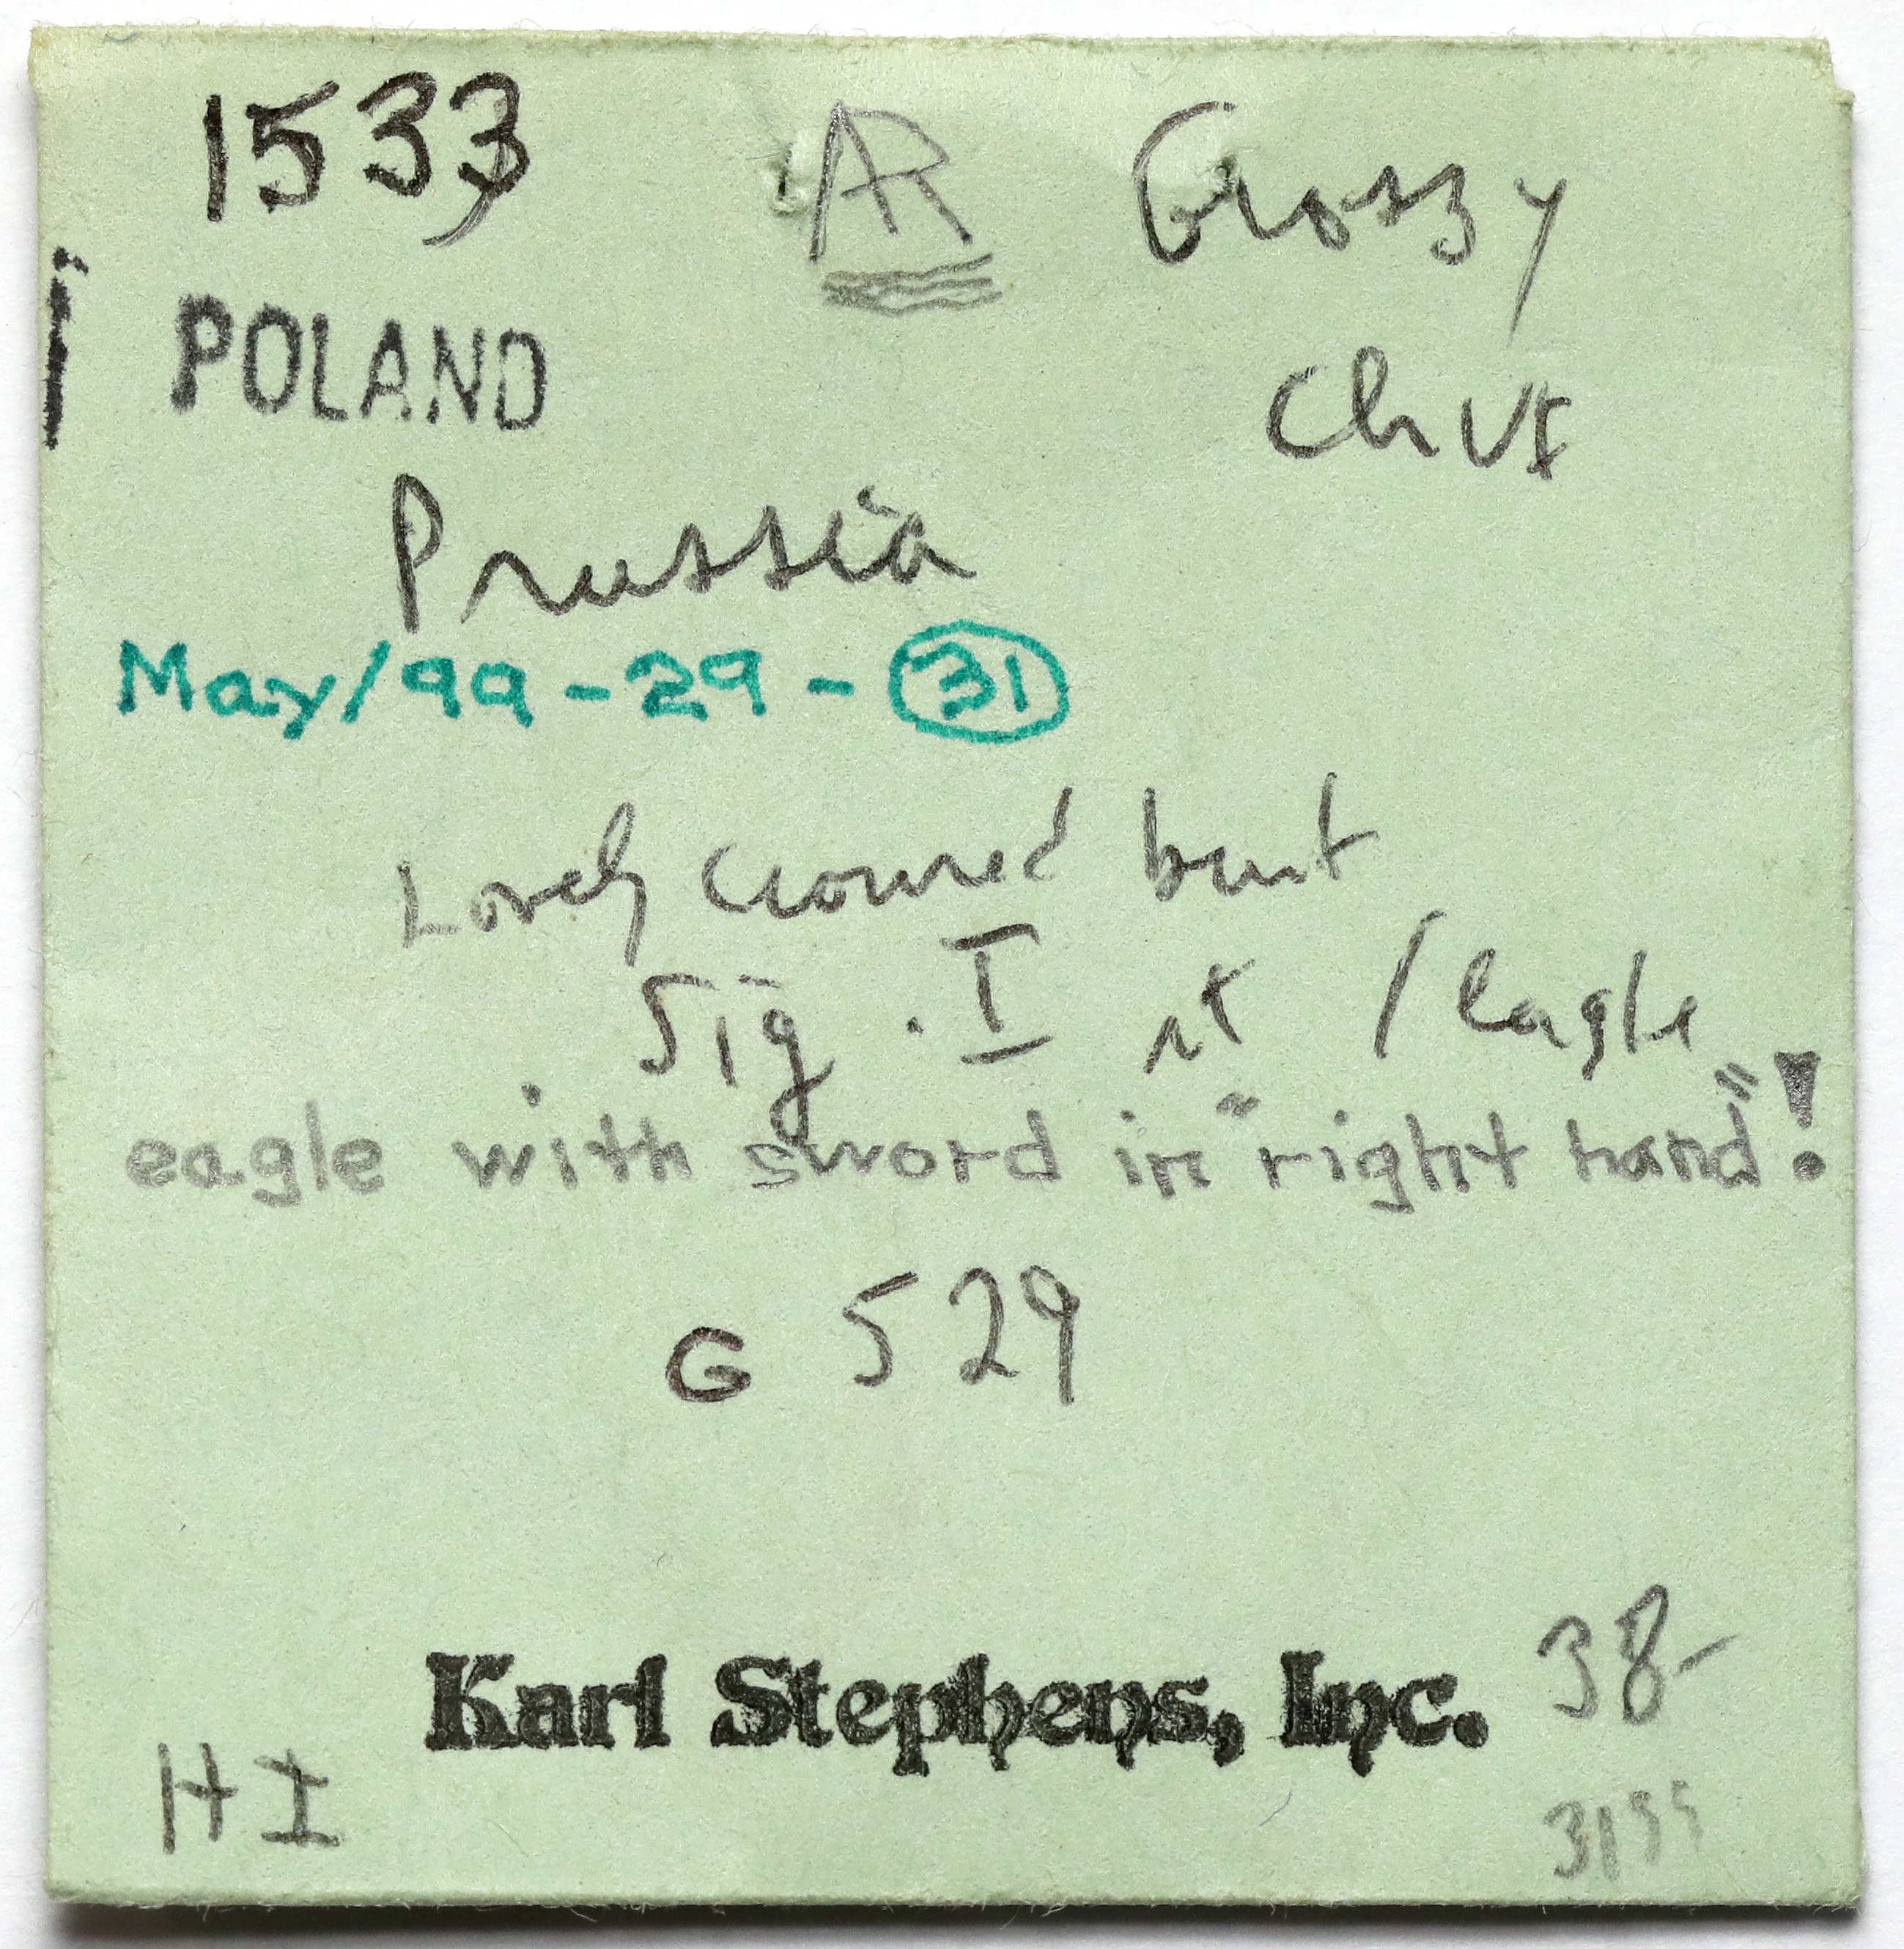 1533 AR Groszy
POLAND Ch VF
Prussia
May/99 - 29 - 31
Lovely crowned bust
Sig. I rt / eagle
eagle with sword in "right hand"!
G 529
Karl Stephens, Inc. 38-
HI